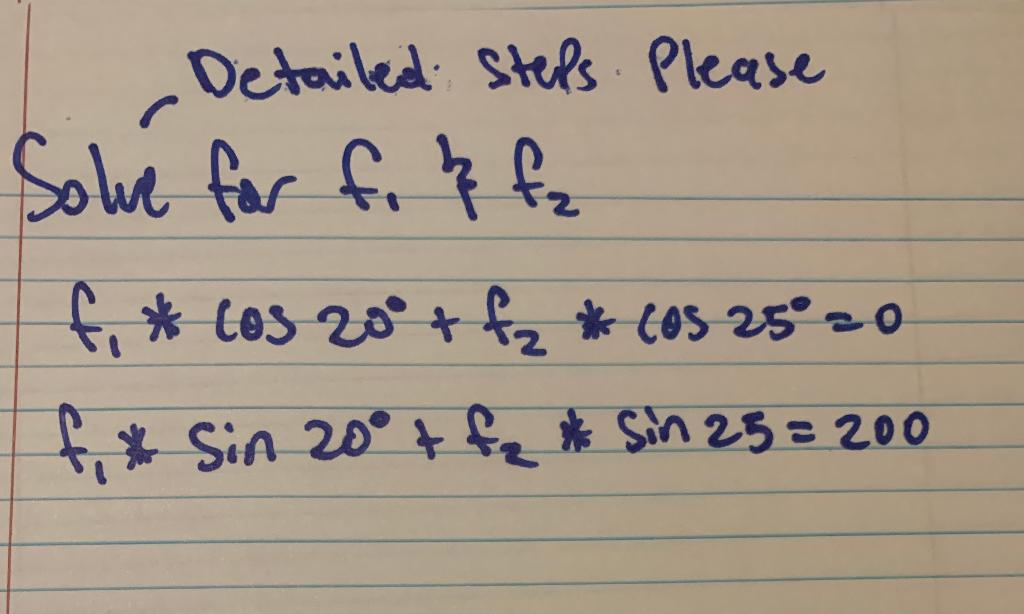 Detailed Steps Please
Solve for f₁ & f₂
f₁ * cos 20° + f₂ * cos 25° = 0
f₁ * Sin 20° + f₂ * Sin 25 = 200